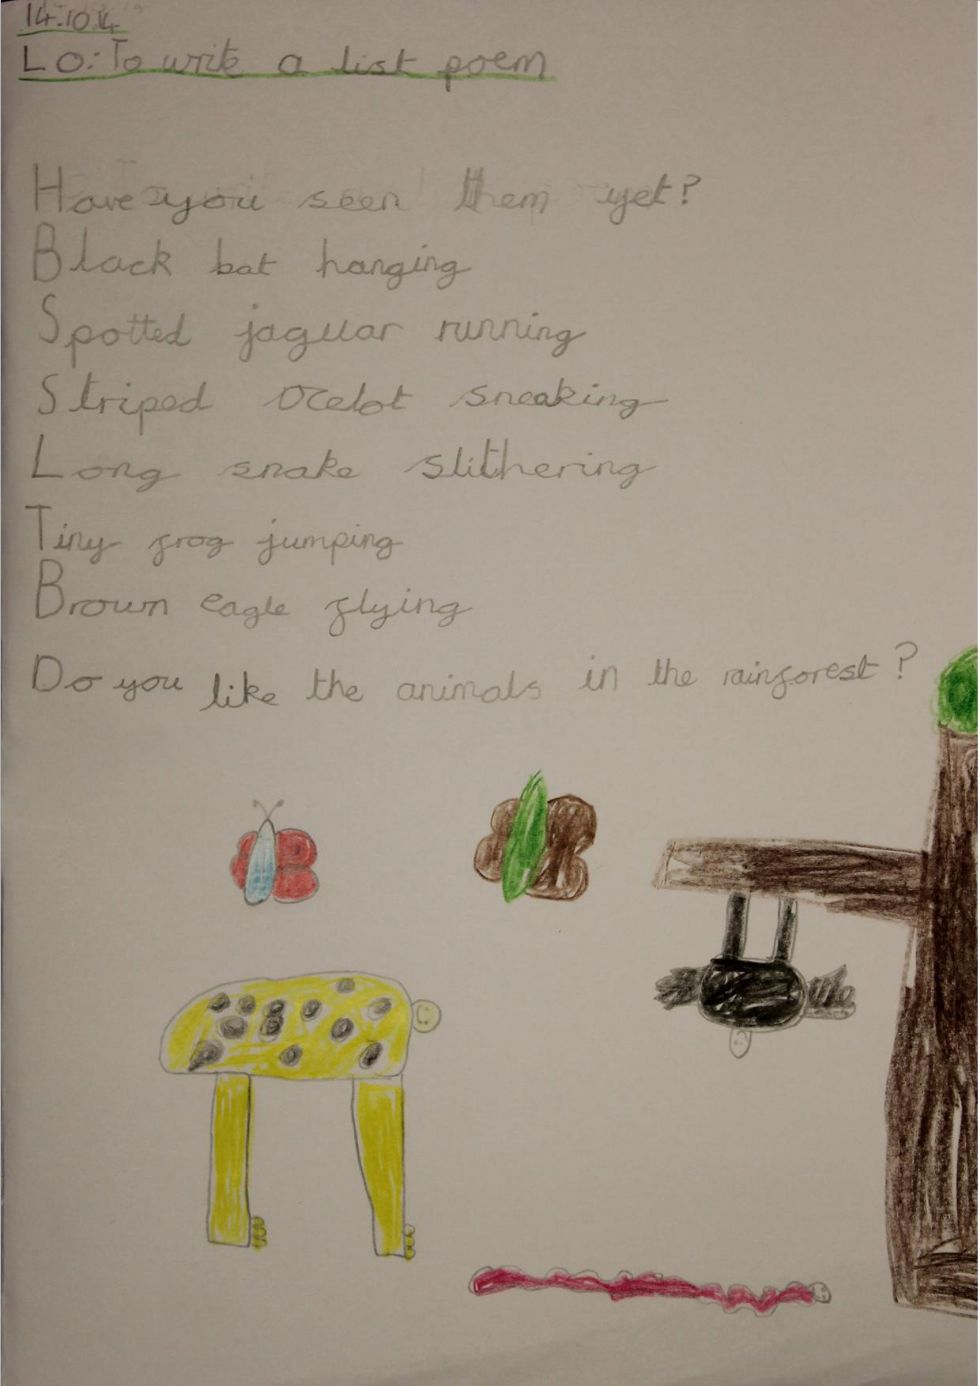 14.10.14
LO: To write a list poem
Have you seen them yet?
Black bat hanging
Spotted jaguar running
Striped ocelot sneaking
Long snake slithering
Tiny frog jumping
Brown eagle flying
Do you like the animals in the rainforest?